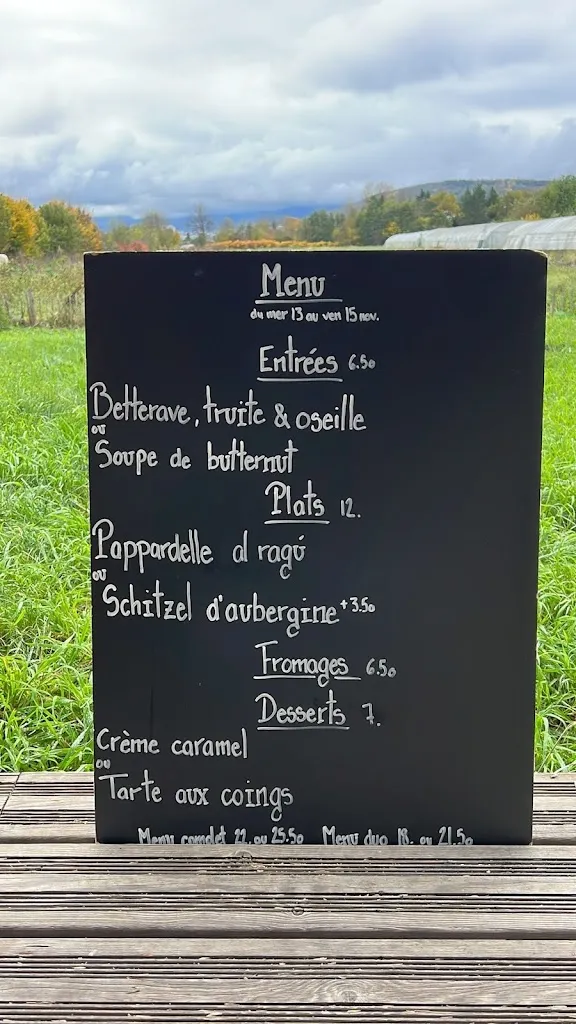 Menu
du mer 13 au ven 15 nov.
Entrées 6.50
Betterave, truite & oseille
ou
Soupe de butternut
Plats 12.
Pappardelle al ragú
ou
Schitzel d'aubergine +3.50
Fromages 6.50
Desserts 7.
Crème caramel
ou
Tarte aux coings
Menu complet 22. ou 25.50 Menu duo 18. ou 21.50